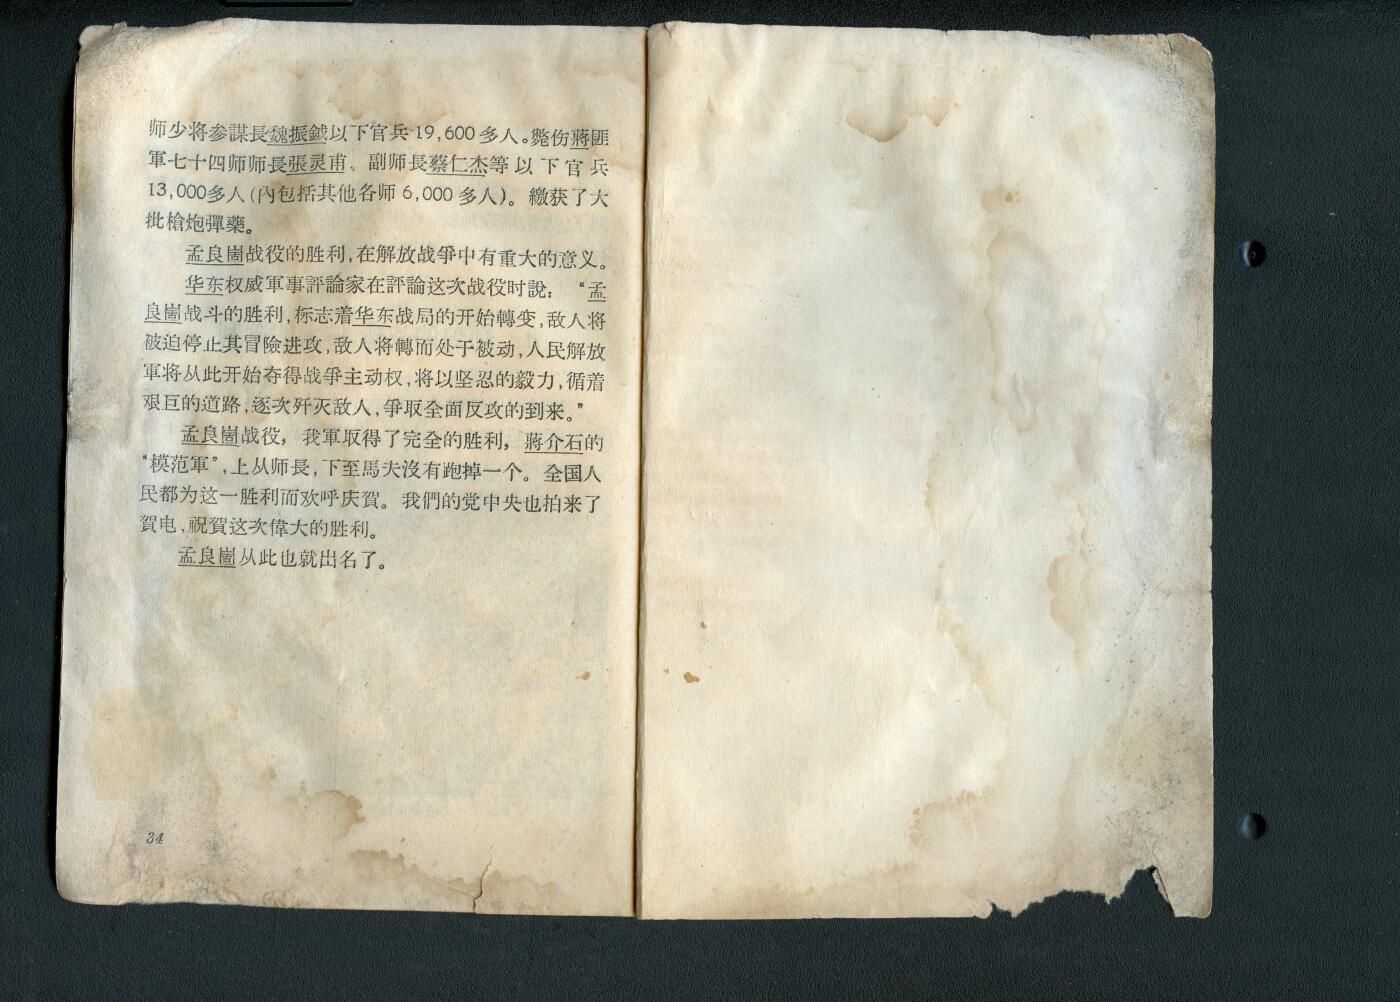 师少将参謀長魏振鉞以下官兵19,600多人。毙伤蔣匪
軍七十四师师長張灵甫、副师長蔡仁杰等以下官兵
13,000多人(內包括其他各师6,000多人)。繳获了大
批槍炮彈藥。
孟良崮战役的胜利,在解放战爭中有重大的意义。
华东权威軍事評論家在評論这次战役时說:“孟
良崮战斗的胜利,标志着华东战局的开始轉变,敌人将
被迫停止其冒險进攻,敌人将轉而处于被动,人民解放
軍将从此开始夺得战爭主动权,将以坚忍的毅力,循着
艰巨的道路,逐次歼灭敌人,爭取全面反攻的到来。”
孟良崮战役,我軍取得了完全的胜利,蔣介石的
“模范軍”,上从师長,下至馬夫沒有跑掉一个。全国人
民都为这一胜利而欢呼庆賀。我們的党中央也拍来了
賀电,祝賀这次偉大的胜利。
孟良崮从此也就出名了。
34